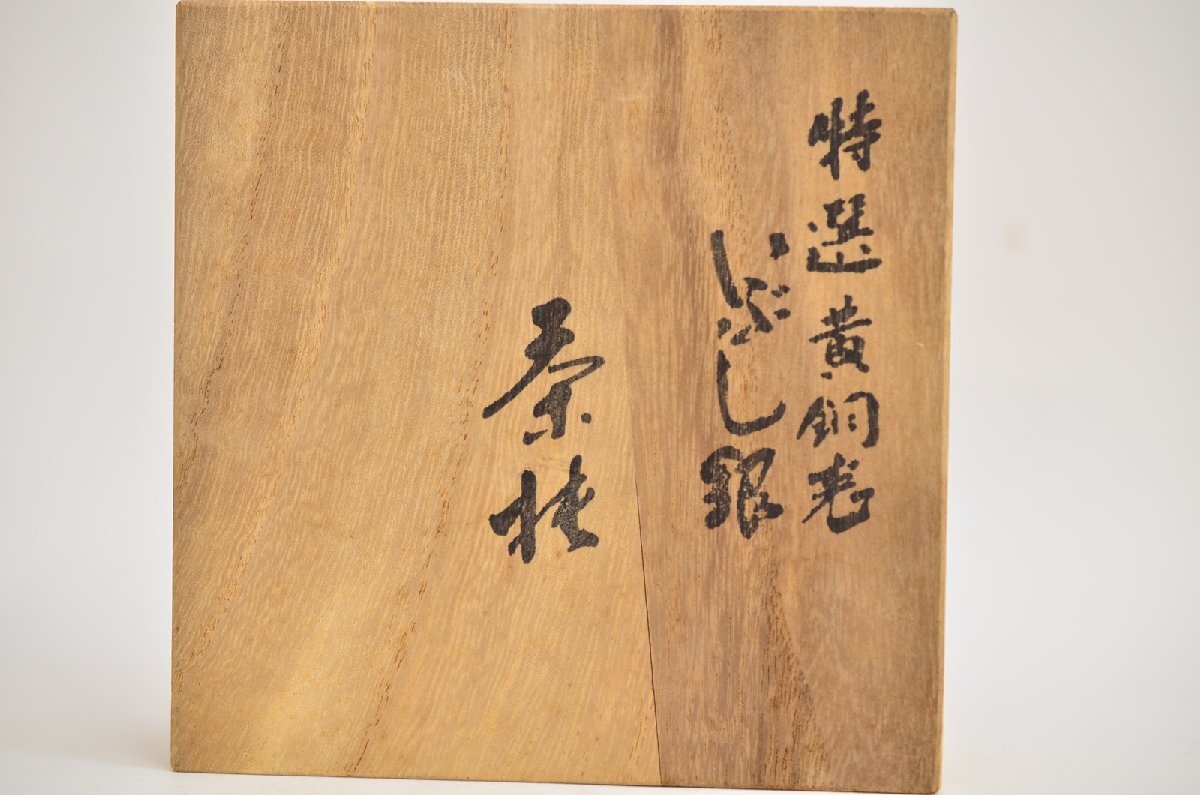 特選黄銅老
いぶし銀
茶托